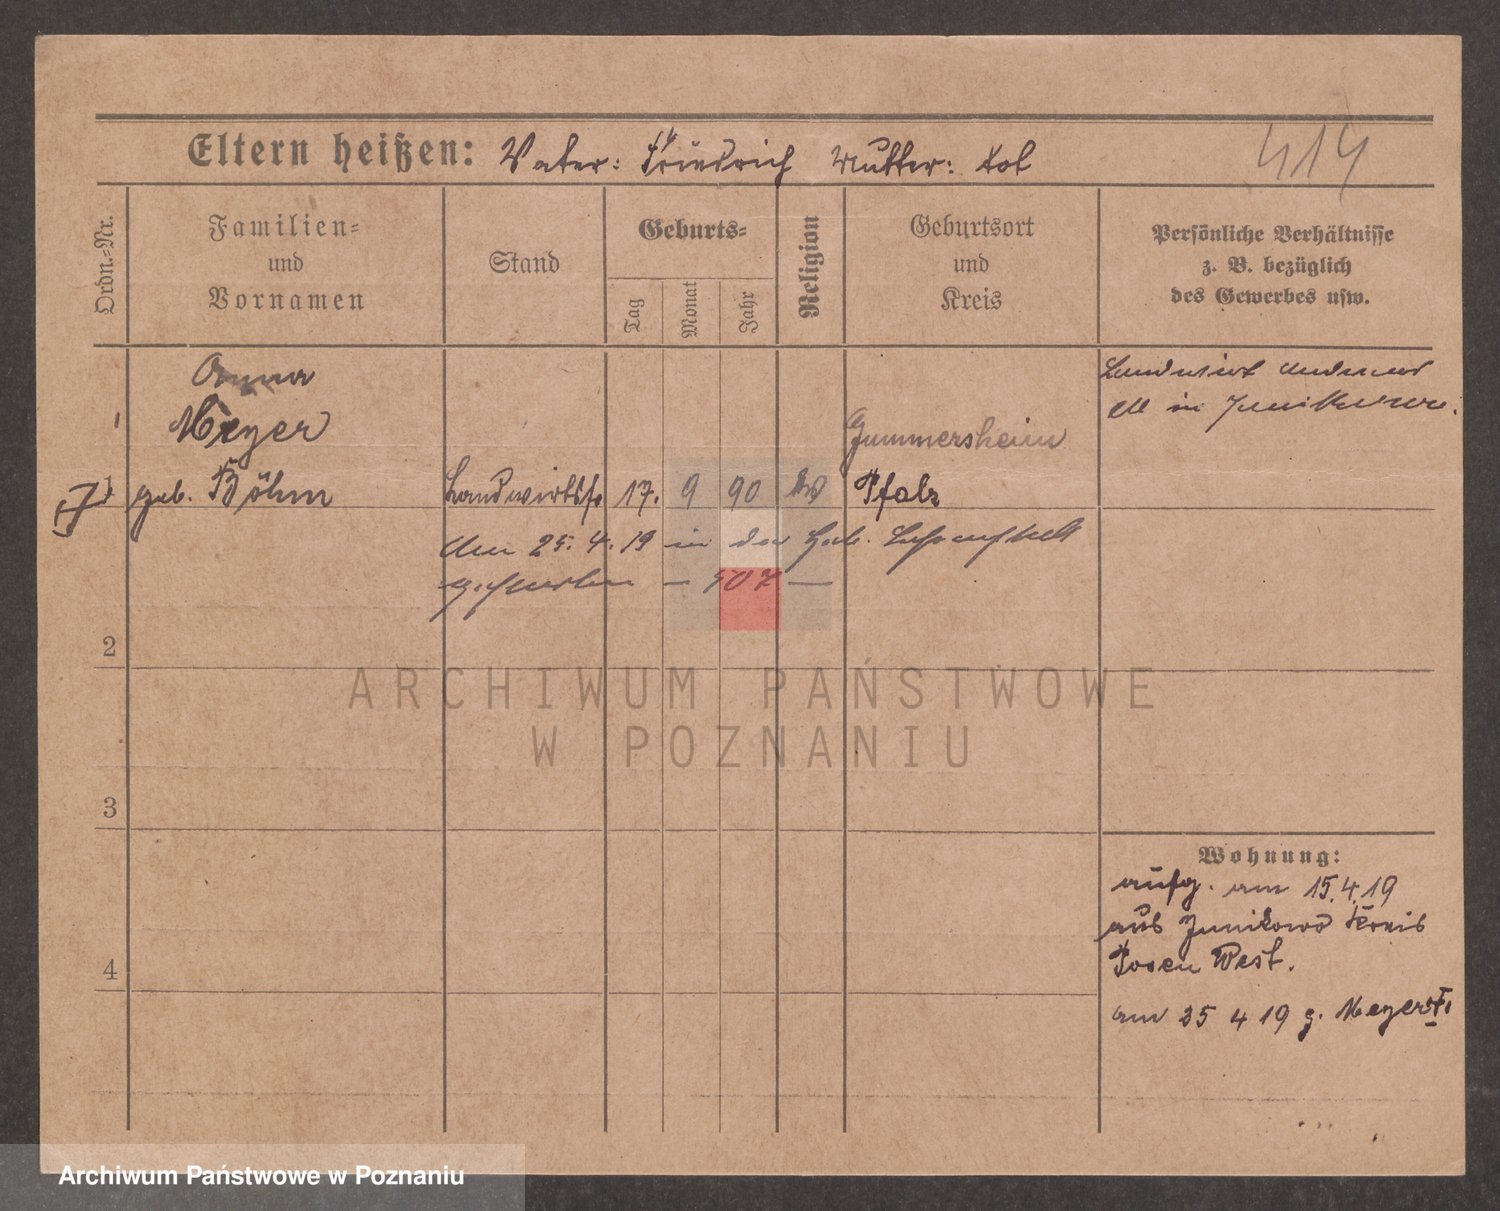 414
Eltern heißen: Vater: Friedrich Mutter: tot
Ordn.-Nr.
Familien-
und
Vornamen
Stand
Geburts-
Tag
Monat
Jahr
Religion
Geburtsort
und
Kreis
Persönliche Verhältnisse
z. B. bezüglich
des Gewerbes usw.
Anna
Meyer
geb. Böhm
1
17. 9 90
Gummersheim
Pfalz
Landwirt
in Junikowo.
Am 25. 4. 19 in der Heb. Lehranstalt
gestorben — 507 —
2
3
4
Wohnung:
aufg. am 15.4.19
aus Junikowo Kreis
Posen West.
am 25 4 19 z. Meyer
ARCHIWUM PAŃSTWOWE
W POZNANIU
Archiwum Państwowe w Poznaniu